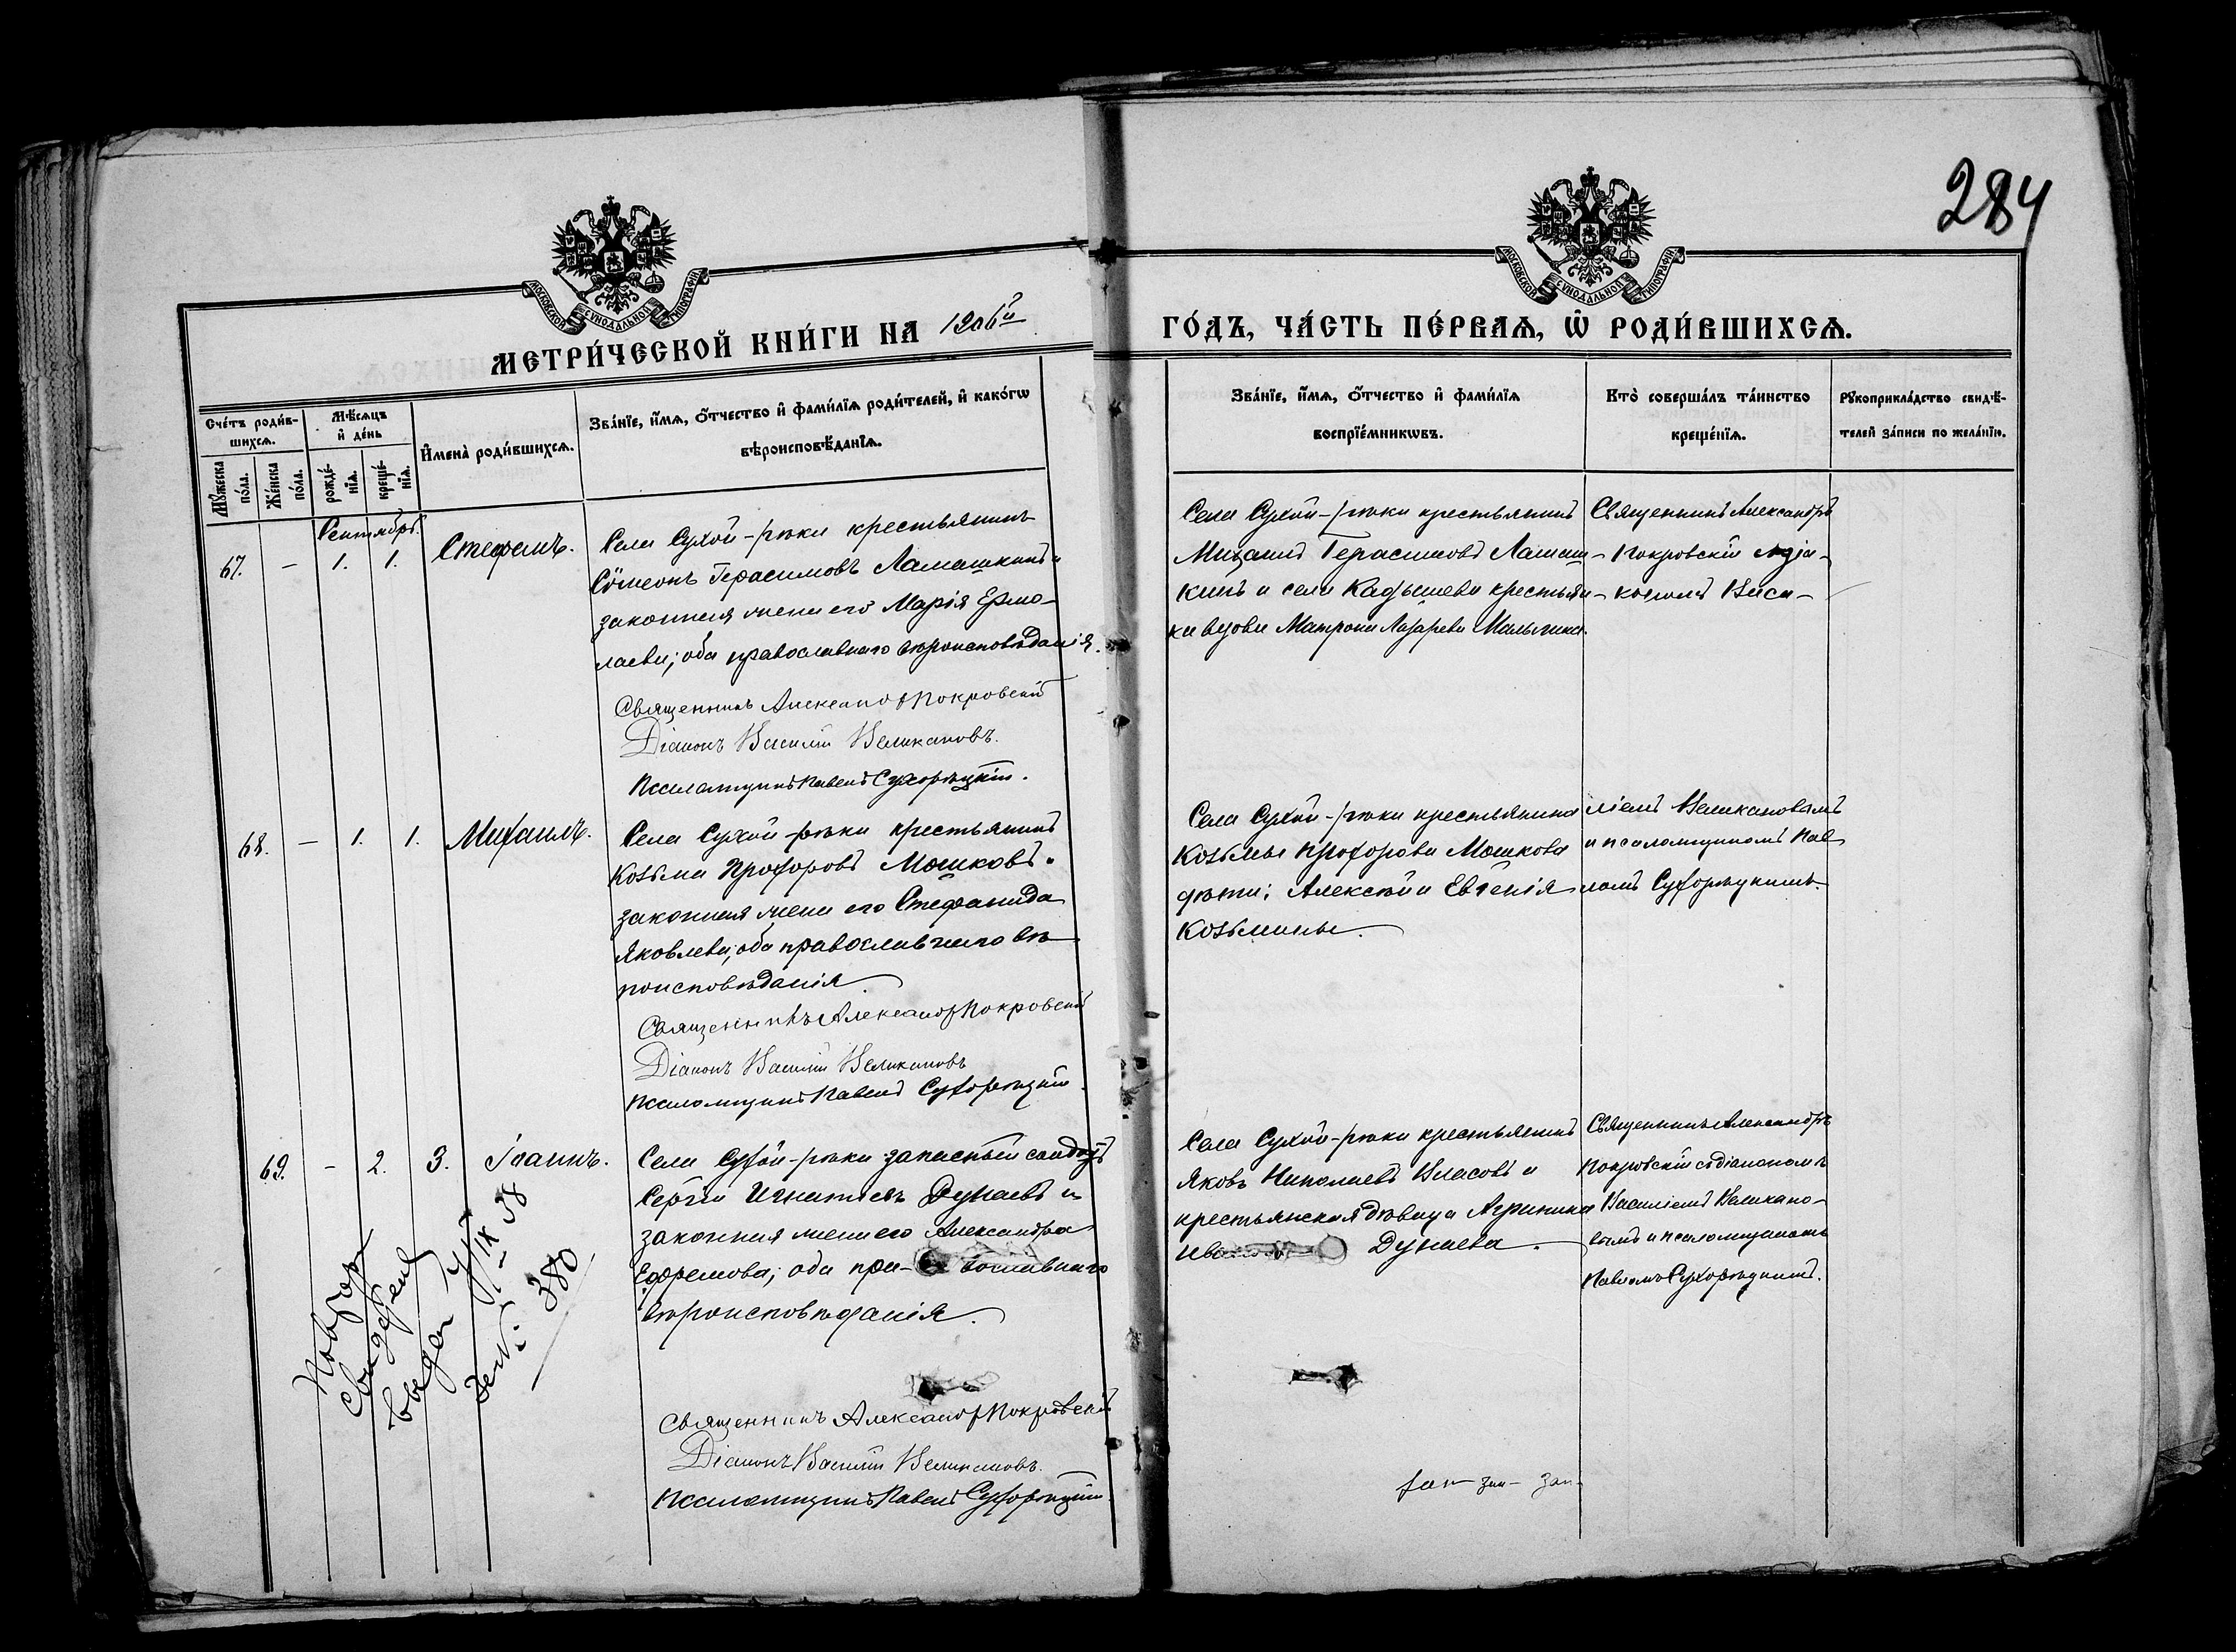 284
МОСКОВСКОЙ СѴНОДАЛЬНОЙ ТИПОГРАФІИ
МОСКОВСКОЙ СѴНОДАЛЬНОЙ ТИПОГРАФІИ
МЕТРИ́ЧЕСКОЙ КНИ́ГИ НА 1906й ГО́ДЪ, ЧА́СТЬ ПЕ́РВАѦ, Ѿ РОДИ́ВШИХСѦ.
Сче́тъ роди́в-
шихсѧ.
Мꙋ́жеска по́ла.
Же́нска по́ла.
Мѣ́сѧцъ
и҆ де́нь
рожде́-
нїѧ.
креще́-
нїѧ.
И҆мена̀ роди́вшихсѧ.
Зва́нїе, и҆́мѧ, ѻ҆́тчество и҆ фами́лїѧ роди́телей, и҆ како́гѡ
вѣроисповѣ́данїѧ.
Зва́нїе, и҆́мѧ, ѻ҆́тчество и҆ фами́лїѧ
воспрїе́мникѡвъ.
Кто̀ соверша́лъ та́инство
креще́нїѧ.
Рꙋкоприкла́дство свидѣ́-
телей за́писи по жела́нїю.
Сентябрь.
67. — 1. 1. Стефанъ.
Села Сухой-рѣки крестьянинъ
Сѵмеонъ Герасимовъ Ламашкинъ и
законная жена его Марія Ермо-
лаева; оба православнаго вѣроисповѣданія.
Священникъ Александр Покровскій
Діаконъ Василій Великановъ.
Псаломщикъ Павелъ Сухорѣцкій.
Села Сухой-рѣки крестьянинъ
Михаилъ Герасимовъ Ламаш-
кинъ и села Кадышева крестьян-
ка вдова Матрона Лазарева Малыгина.
Священникъ Александръ
Покровскій съ діа-
кономъ Васи-
68. — 1. 1. Михаилъ.
Села Сухой-рѣки крестьянинъ
Козьма Прохоровъ Мошковъ и
законная жена его Стефанида
Яковлева; оба православнаго вѣ-
роисповѣданія.
Священникъ Александр Покровскій
Діаконъ Василій Великановъ
Псаломщикъ Павелъ Сухорѣцкій.
Села Сухой-рѣки крестьянина
Козьмы Прохорова Мошкова
дѣти: Алексѣй и Евгенія
Козьмины.
ліемъ Великановымъ
и псаломщикомъ Пав-
ломъ Сухорѣцкимъ.
69. — 2. 3. Іоаннъ.
Села Сухой-рѣки запасный солдатъ
Сергій Игнатьевъ Дунаевъ и
законная жена его Александра
Ефремова; оба пра- вославнаго
вѣроисповѣданія.
Священникъ Александр Покровскій
Діаконъ Василій Великановъ.
Псаломщикъ Павелъ Сухорѣцкій.
Села Сухой-рѣки крестьянинъ
Яковъ Николаевъ Власовъ и
крестьянская дѣвица Агрипина
Дунаева.
Священникъ Александръ
Покровскій съ діакономъ
Василіемъ Велика но-
вымъ и псаломщикомъ
Павломъ Сухорѣцкимъ.
IX 38
380